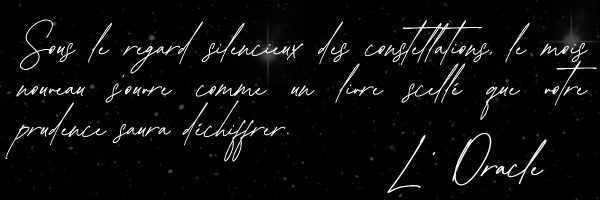 Sous le regard silencieux des constellations, le mois
nouveau s'ouvre comme un livre scellé que votre
prudence saura déchiffrer.
L'Oracle